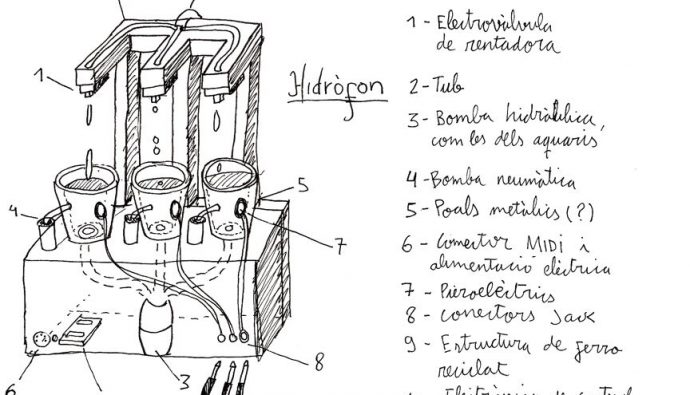 1
Hidròfon
4
5
7
6
3
8
1 - Electrovàlvula
de rentadora
2 - Tub
3 - Bomba hidràulica,
com les dels aquaris
4 - Bomba neumàtica
5 - Poals metàlics (?)
6 - Conector MIDI i
alimentació elèctrica
7 - Piezoelèctrics
8 - Conectors Jack
9 - Estructura de ferro
reciclat